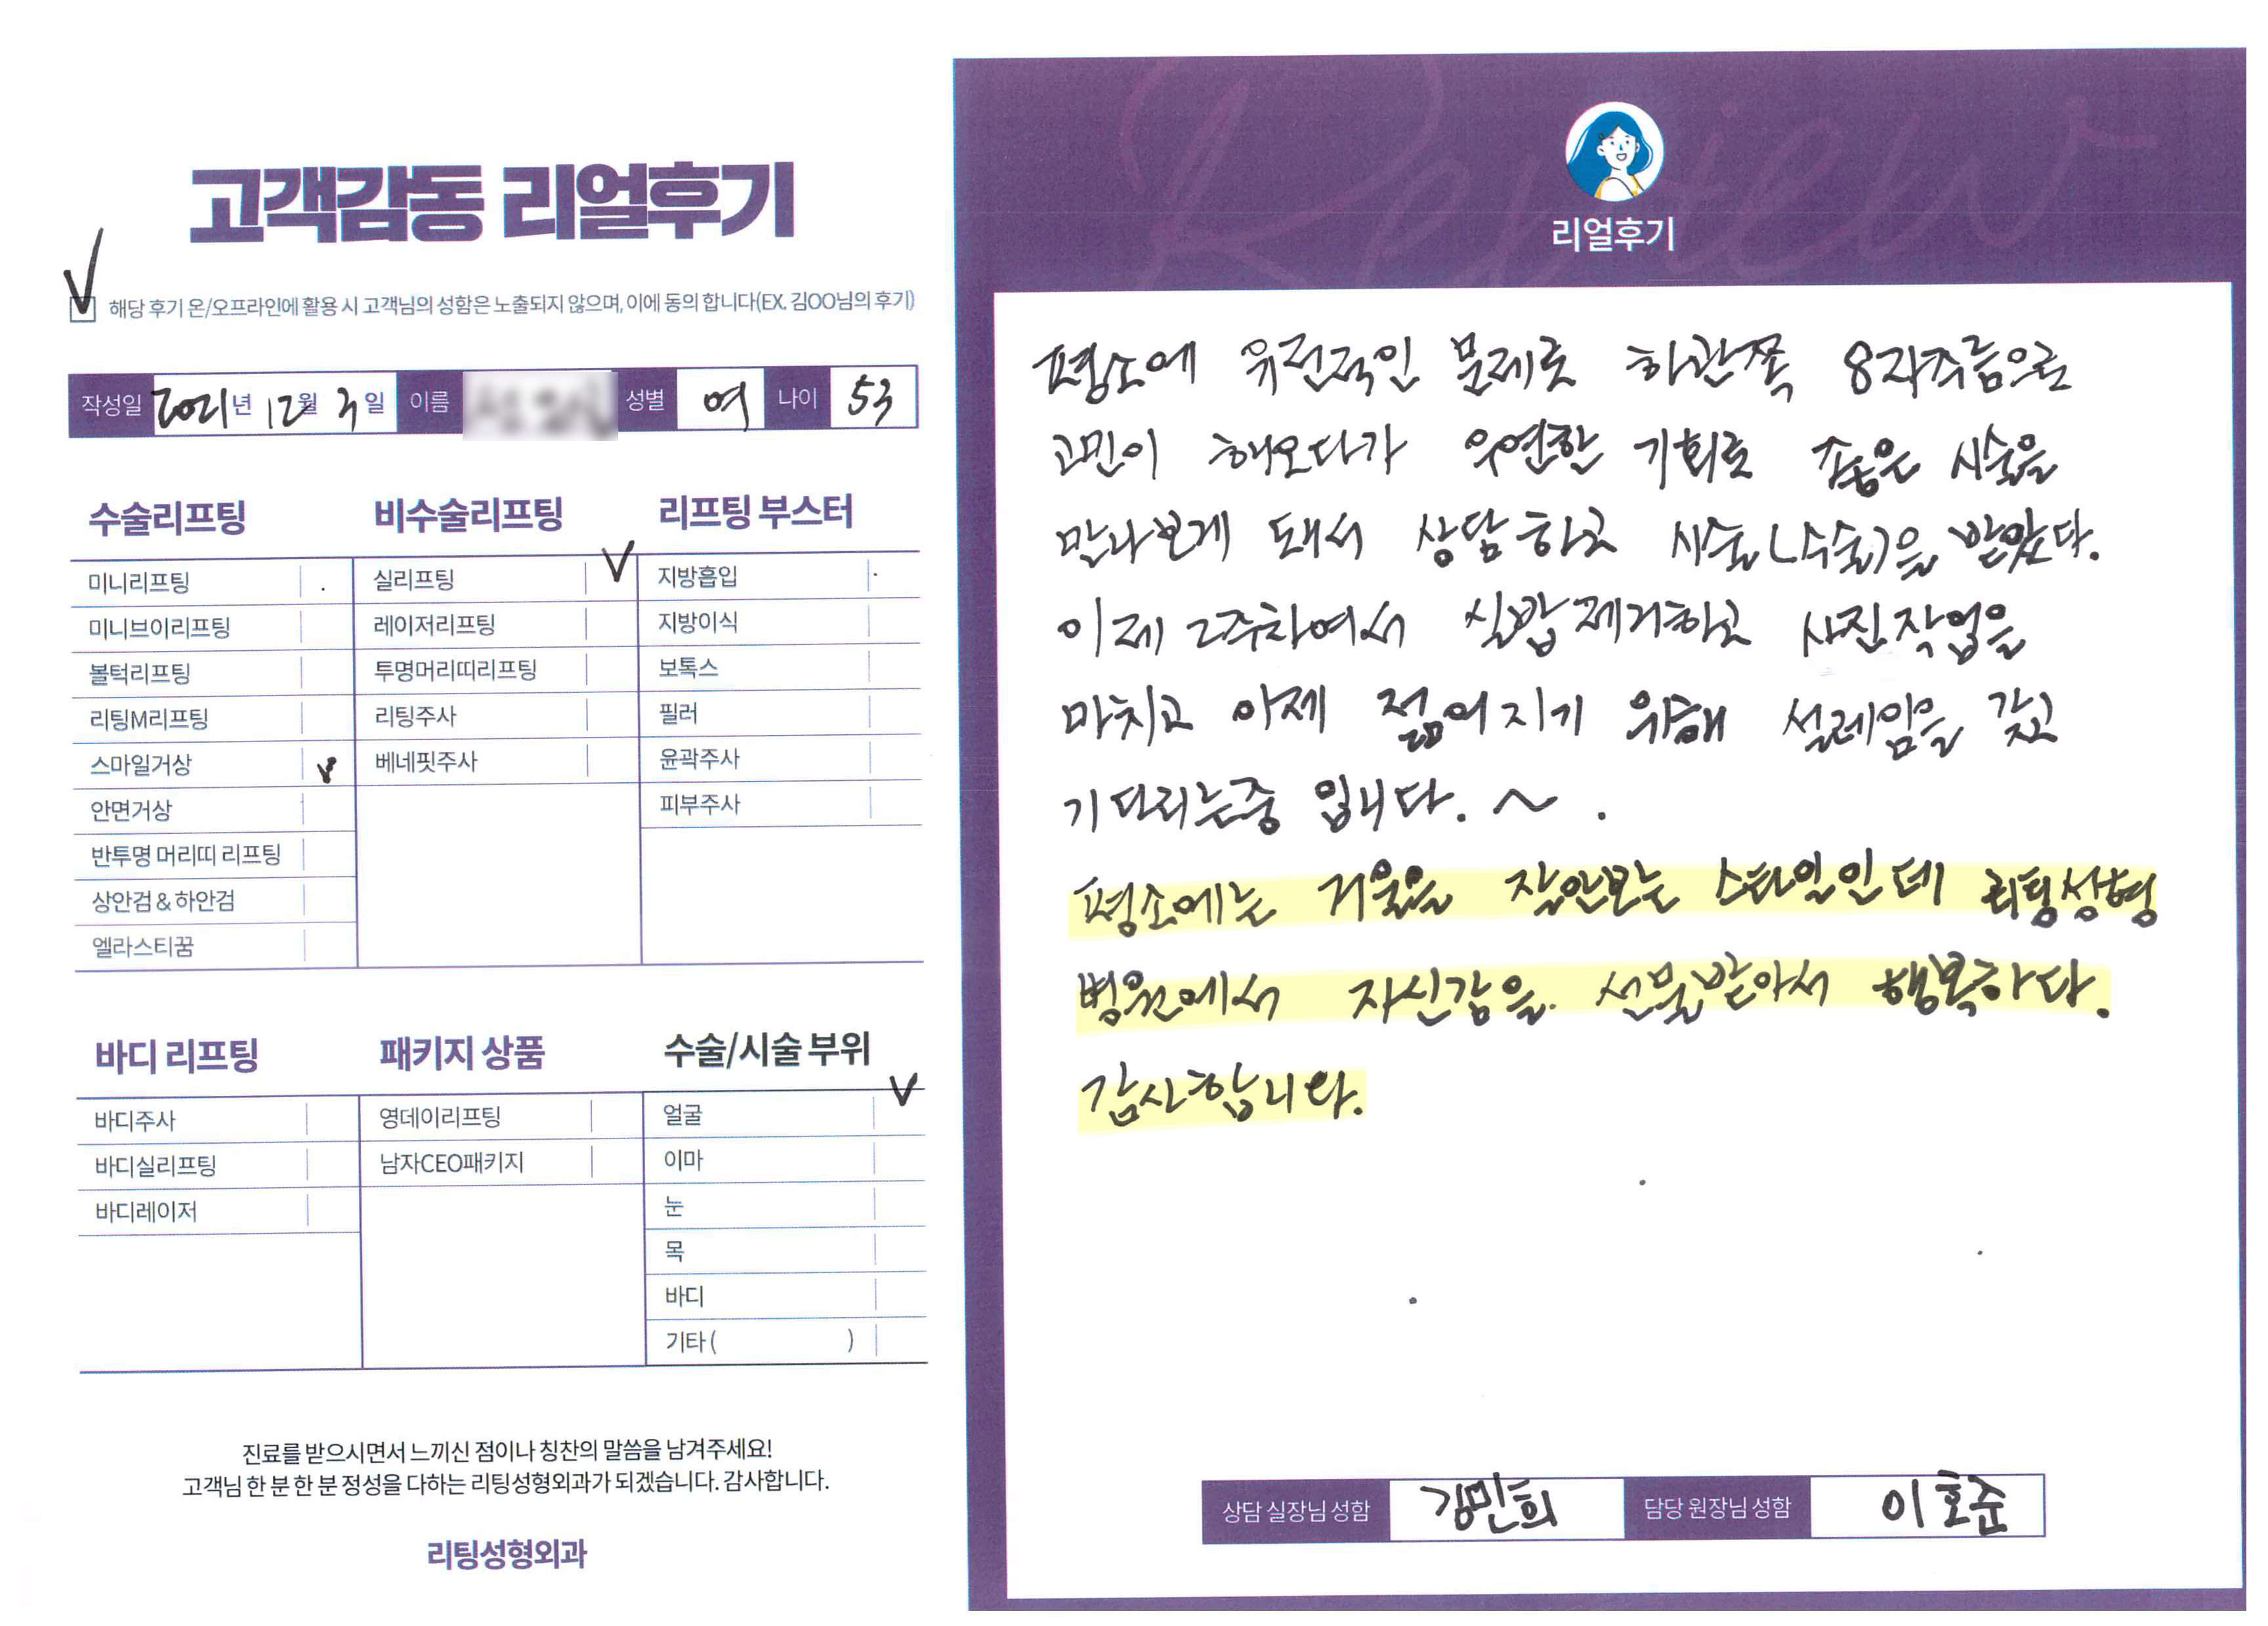 고객감동 리얼후기
해당 후기 온/오프라인에 활용 시 고객님의 성함은 노출되지 않으며, 이에 동의 합니다(EX. 김OO님의 후기)
작성일 2021년 12월 3일 이름 성별 여 나이 53
수술리프팅
미니리프팅
미니브이리프팅
볼턱리프팅
리팅M리프팅
스마일거상
안면거상
반투명 머리띠 리프팅
상안검 & 하안검
엘라스티꿈
비수술리프팅
실리프팅
레이저리프팅
투명머리띠리프팅
리팅주사
베네핏주사
리프팅 부스터
지방흡입
지방이식
보톡스
필러
윤곽주사
피부주사
바디 리프팅
바디주사
바디실리프팅
바디레이저
패키지 상품
영데이리프팅
남자CEO패키지
수술/시술 부위
얼굴
이마
눈
목
바디
기타 ( )
진료를 받으시면서 느끼신 점이나 칭찬의 말씀을 남겨주세요!
고객님 한 분 한 분 정성을 다하는 리팅성형외과가 되겠습니다. 감사합니다.
리팅성형외과
Review
리얼후기
평소에 유전적인 문제로 하관쪽 8자주름으로
고민이 해오다가 우연한 기회로 좋은 시술을
만나보게 돼서 상담하고 시술(수술)을 받았다.
이제 2주차여서 실밥제거하고 사진작업을
마치고 아제 젊어지기 위해 설레임을 갖고
기다리는중 입니다. ~ .
평소에는 거울을 잘안보는 스타일인데 리팅성형
병원에서 자신감을 선물받아서 행복하다.
감사합니다.
상담 실장님 성함 김민희 담당 원장님 성함 이호준